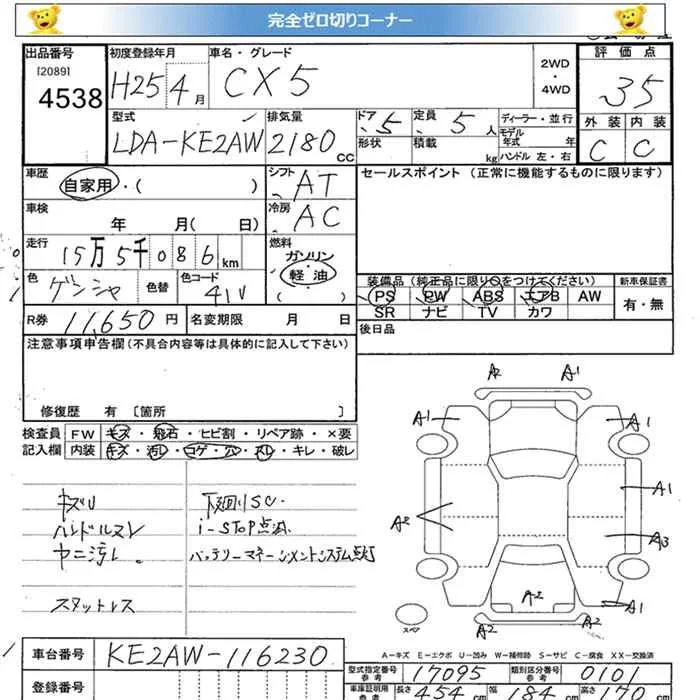 完全ゼロ切りコーナー
出品番号 [2089] 4538
初度登録年月 H25 4月
車名・グレード CX5
2WD・4WD
評価点 3.5
型式 LDA-KE2AW
排気量 2180 CC
ドア 5 形状
定員 5人 積載 kg
ディーラー・並行
モデル年式 年
ハンドル 左・右
外装 C 内装 C
車歴 自家用・( )
シフト AT
セールスポイント(正常に機能するものに限ります)
車検 年 月( 日)
冷房 AC
走行 15万5千086km
燃料 ガソリン 軽・油 ( )
色 ゲンシャ 色替 色コード 41V
装備品(純正品に限り○をつけてください) 新車保証書
PS PW ABS エアB AW 有・無
SR ナビ TV カワ
R券 11,650円 名変期限 月 日
後日品
注意事項申告欄(不具合内容等は具体的に記入して下さい)
修復歴 有 [箇所 ]
検査員 FW キズ・飛石・ヒビ割・リペア跡・×要
記入欄 内装 キズ・汚レ・コゲ・穴・スレ・キレ・破レ
A2 A1
A1 A1
A1
A2
A3
A2
A1
A2 A2
スペア
キズU 下廻りSC.
ハンドルスレ i-STOP点滅
ヤニ汚レ. バッテリーマネージメントシステム点灯
スタットレス
A-キズ E-エクボ U-凹み W-補修跡 S-サビ C-腐食 XX-交換済
車台番号 KE2AW-116230
型式指定番号 参考 17095 類別区分番号 参考 0101
登録番号
車庫証明用 参考 長さ 454 cm 幅 184 cm 高さ 170 cm